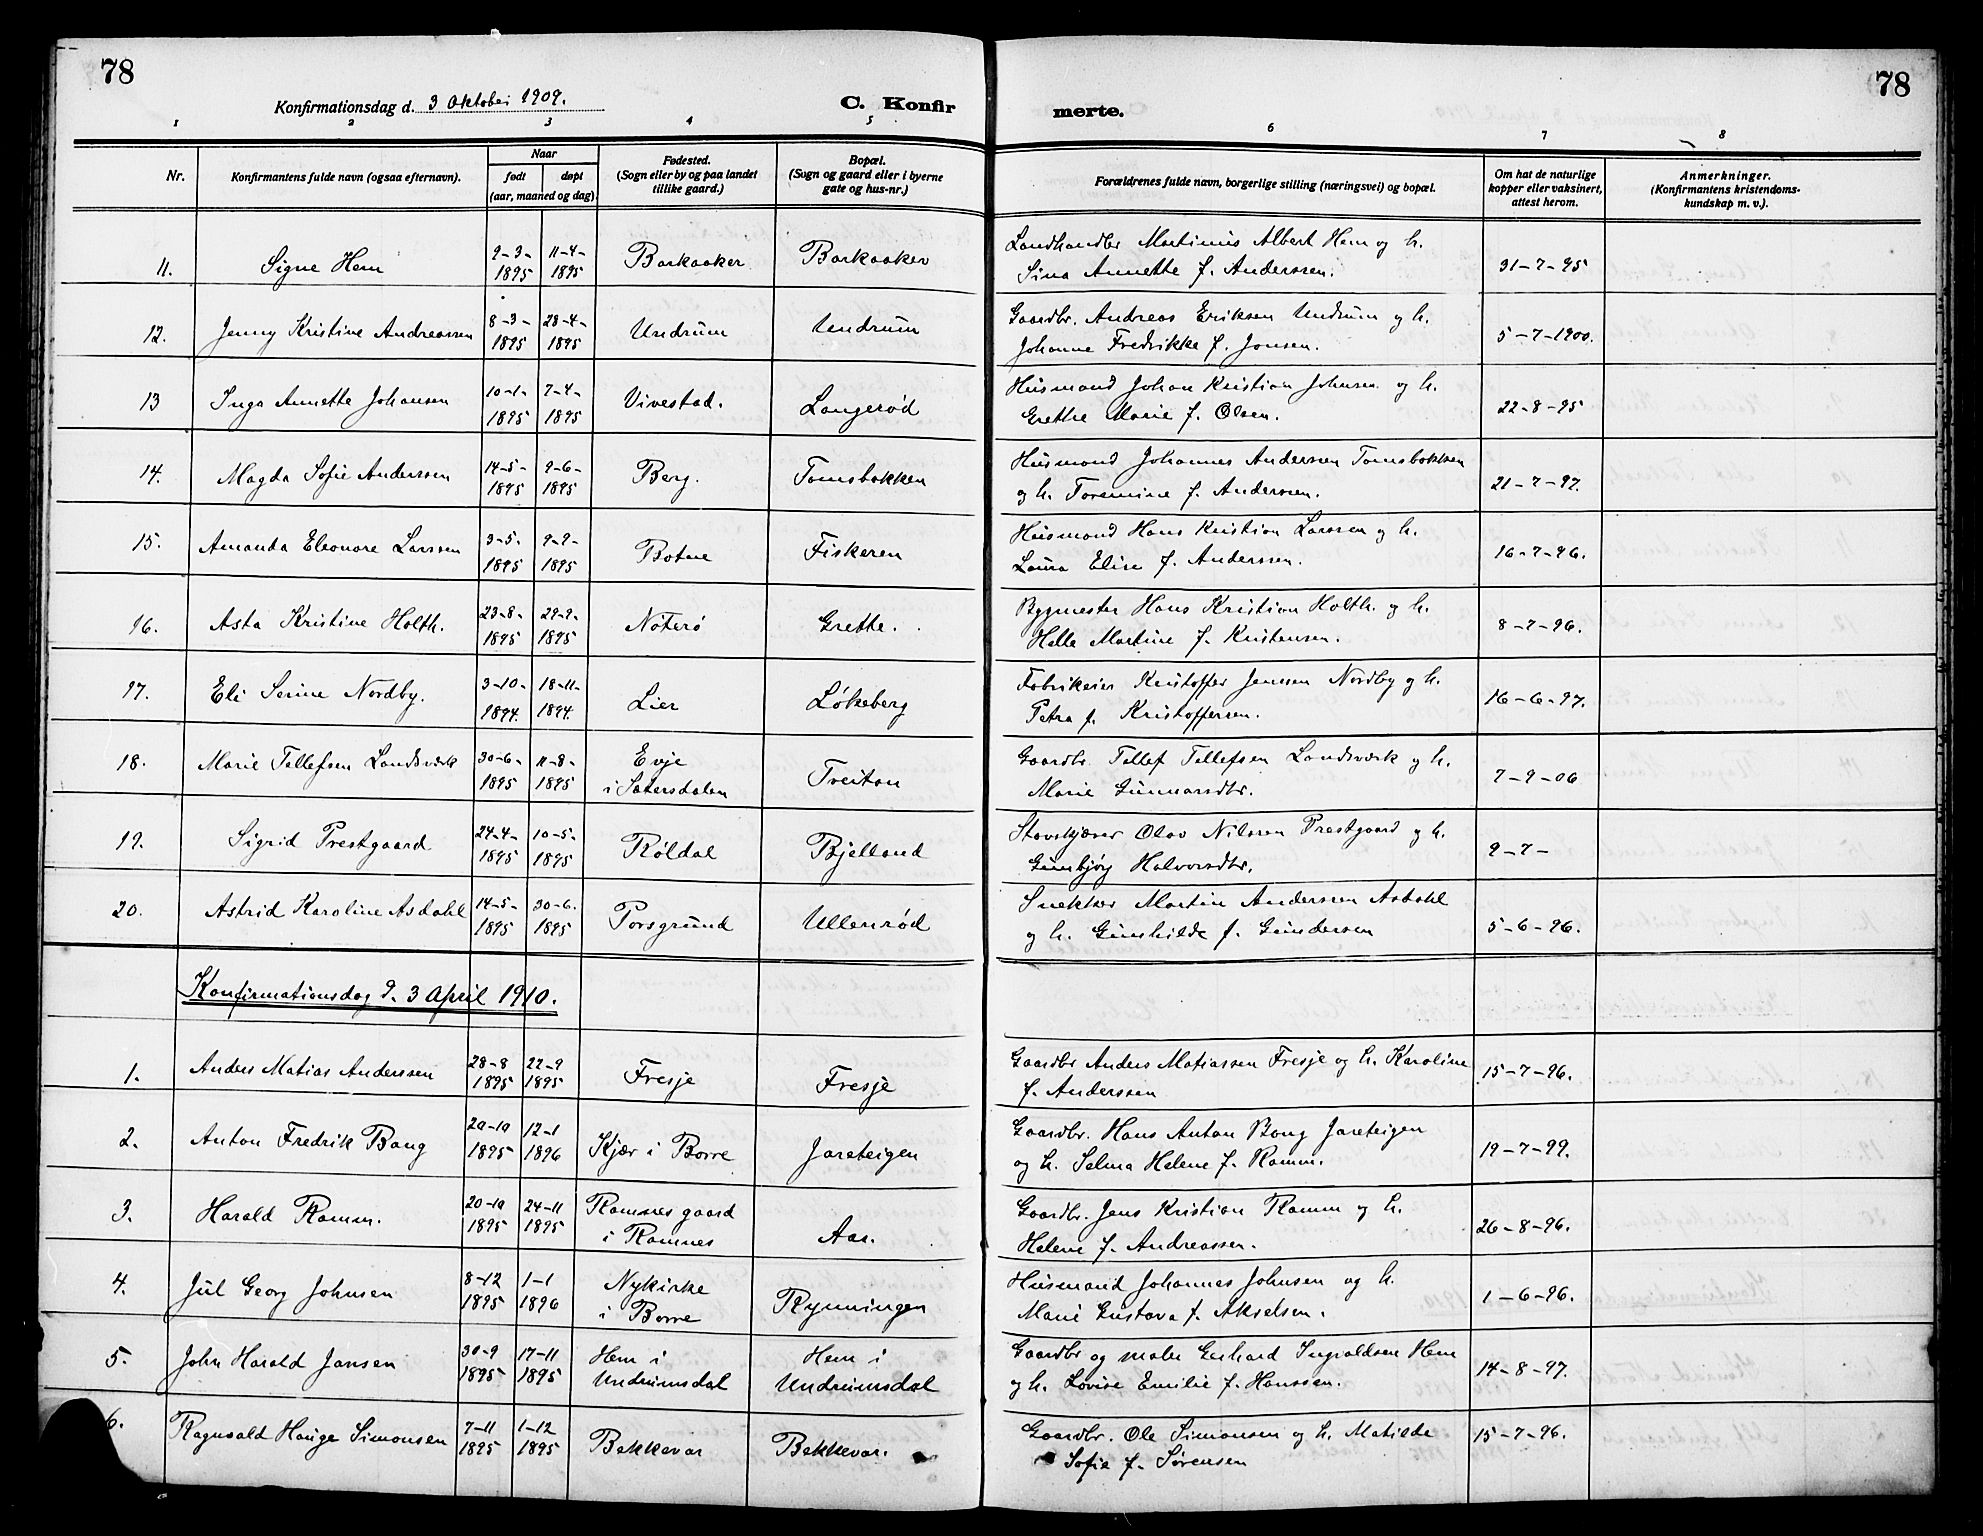 78
Konfirmationsdag d. 3 Oktober 1909.
C. Konfir
merte.
78
1 2 3 4 5 6 7 8
Nr.
Konfirmantens fulde navn (ogsaa efternavn).
Naar
født
døpt
(aar, maaned og dag).
Fødested.
(Sogn eller by og paa landet
tillike gaard.)
Bopæl.
(Sogn og gaard eller i byerne
gate og hus-nr.)
Forældrenes fulde navn, borgerlige stilling (næringsvei) og bopæl.
Om hat de naturlige
kopper eller vaksinert,
attest herom.
Anmerkninger.
(Konfirmantens kristendoms-
kundskap m. v.).
11. Signe Hem 9-3-1895 11-4-1895 Barkaaker Barkaaker Landhandler Martinius Albert Hem og h.
Sina Annette f. Anderssen. 31-7-95
12. Jenny Kristine Andreassen 8-3-1895 28-4-1895 Undrum Undrum Gaardbr. Andreas Eriksen Undrum og h.
Johanne Fredrikke f. Jonsen. 5-7-1900.
13 Inga Annette Johansen 10-1-1895 7-4-1895 Vivestad. Langerød Husmand Johan Kristian Johnsen og h.
Grethe Marie f. Olsen. 22-8-95
14. Magda Sofie Anderssen 14-5-1895 9-6-1895 Berg. Tomsbakken Husmand Johannes Anderssen Tomsbakken
og h. Toremine f. Anderssen. 21-7-97.
15. Amanda Eleonore Larssen 3-5-1895 9-9-1895 Botne Fiskeren Husmand Hans Kristian Larssen og h.
Laura Elise f. Anderssen. 16-7-96.
16. Asta Kristine Holth. 23-8-1895 29-9-1895 Nøterø Grette. Bygmester Hans Kristian Holth. og h.
Helle Martine f. Kristensen. 8-7-96.
17. Eli Serine Nordby. 3-10-1894. 18-11-1894. Lier Løkeberg Fabrikeier Kristoffer Jenssen Nordby og h.
Petra f. Kristoffersen. 16-6-97.
18. Marie Tellefsen Landsværk 30-6-1895 11-8-1895 Evje
i Sætersdalen Treitan Gaardbr. Tellef Tellefsen Landsværk og h.
Marie Gunnarsdtr. 7-9-06
19. Sigrid Prestgaard 24-4-1895 10-5-1895 Røldal Bjelland Stavskjærer Olav Nilssen Prestgaard og h.
Gunbjøg Halvorsdtr. 9-7-
20. Astrid Karoline Asdahl 14-5-1895 30-6-1895 Porsgrund Ullenrød Snekker Martin Anderssen Asdahl
og h. Gunhilde f. Gundersen 5-6-96.
Konfirmationsdag d. 3 April 1910.
1. Anders Matias Anderssen 28-8 1895 22-9 1895 Fresje Fresje Gaardbr Anders Matiassen Fresje og h. Karoline
f. Anderssen 15-7-96.
2. Anton Fredrik Bang 20-10 1895 12-1 1896 Kjær i Borre Jareteigen Gaardbr. Hans Anton Bang Jareteigen
og h. Selma Helene f. Ramm. 19-7-99.
3. Harald Ramm. 20-10 1895 24-11 1895 Ramnes gaard
i Ramnes Aar. Gaardbr. Jens Kristian Ramm og h.
Helene f. Andreassen. 26-8-96.
4. Jul Georg Johnsen 8-12 1895 1-1 1896 Nykirke
i Borre Rynningen Husmand Johannes Johnsen og h.
Marie Gustava f. Akselsen. 1-6-96.
5. John Harald Jansen 30-9 1895 17-11 1895 Hem i
Undrumsdal Hem i
Undrumsdal Gaardbr og maler Gerhard Ingvaldsen Hem
og h. Lovise Emilie f. Hanssen. 14-8-97.
6. Ragnvald Hauge Simonsen 7-11 1895 1-12 1895 Bekkevar Bekkevar. Gaardbr. Ole Simonsen og h. Matilde
Sofie f. Sørensen 15-7-96.